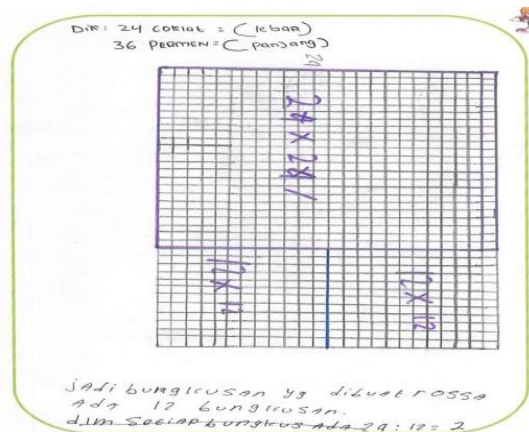 Dik: 24 coklat = (lebar)
36 PERMEN = (Panjang)
24
24 X 24
12 X 12
12 X 12
jAdi bungkusan yg dibuat rossA
AdA 12 bungkusan.
dlm SetiAp bungkus AdA 24 : 12 = 2